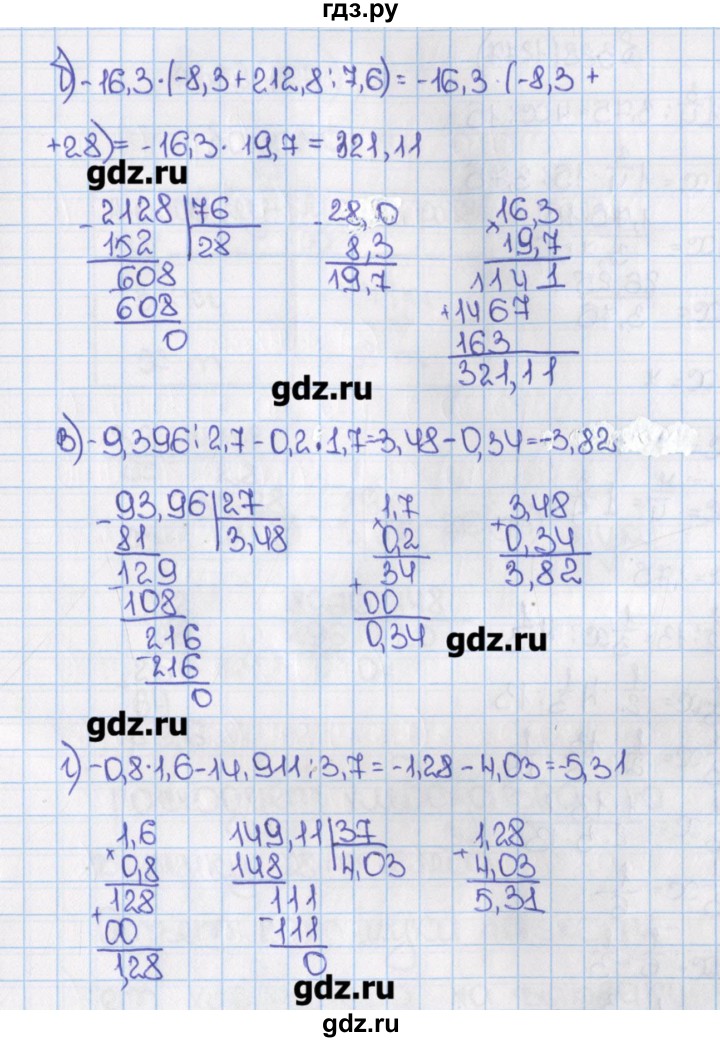 гдз.ру
б) -16,3·(-8,3+212,8:7,6) = -16,3·(-8,3+
+28)= -16,3·19,7 = 321,11
gdz.ru
-2128 |76
152 28
608
608
0
-28,0
8,3
19,7
×16,3
19,7
1141
+1467
163
321,11
gdz.ru
в) -9,396:2,7-0,2·1,7=-3,48-0,34=-3,82
-93,96 |27
81 3,48
-129
108
216
-216
0
×1,7
0,2
34
+00
0,34
+3,48
0,34
3,82
gdz.ru
gdz.ru
г) -0,8·1,6-14,911:3,7=-1,28-4,03=-5,31
×1,6
0,8
128
+00
1,28
149,11 |37
148 4,03
111
-111
0
+1,28
4,03
5,31
gdz.ru
gdz.ru